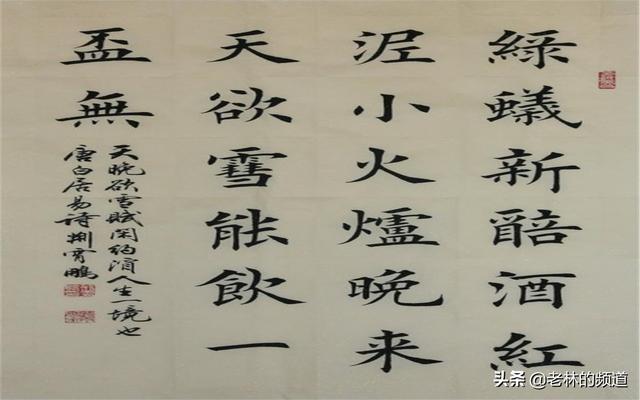 綠蟻新醅酒紅
泥小火爐晚来
天欲雪能飲一
盃無
天晚欲雪賦閑約酒人生一境也
唐白居易詩
头条 @老林的频道